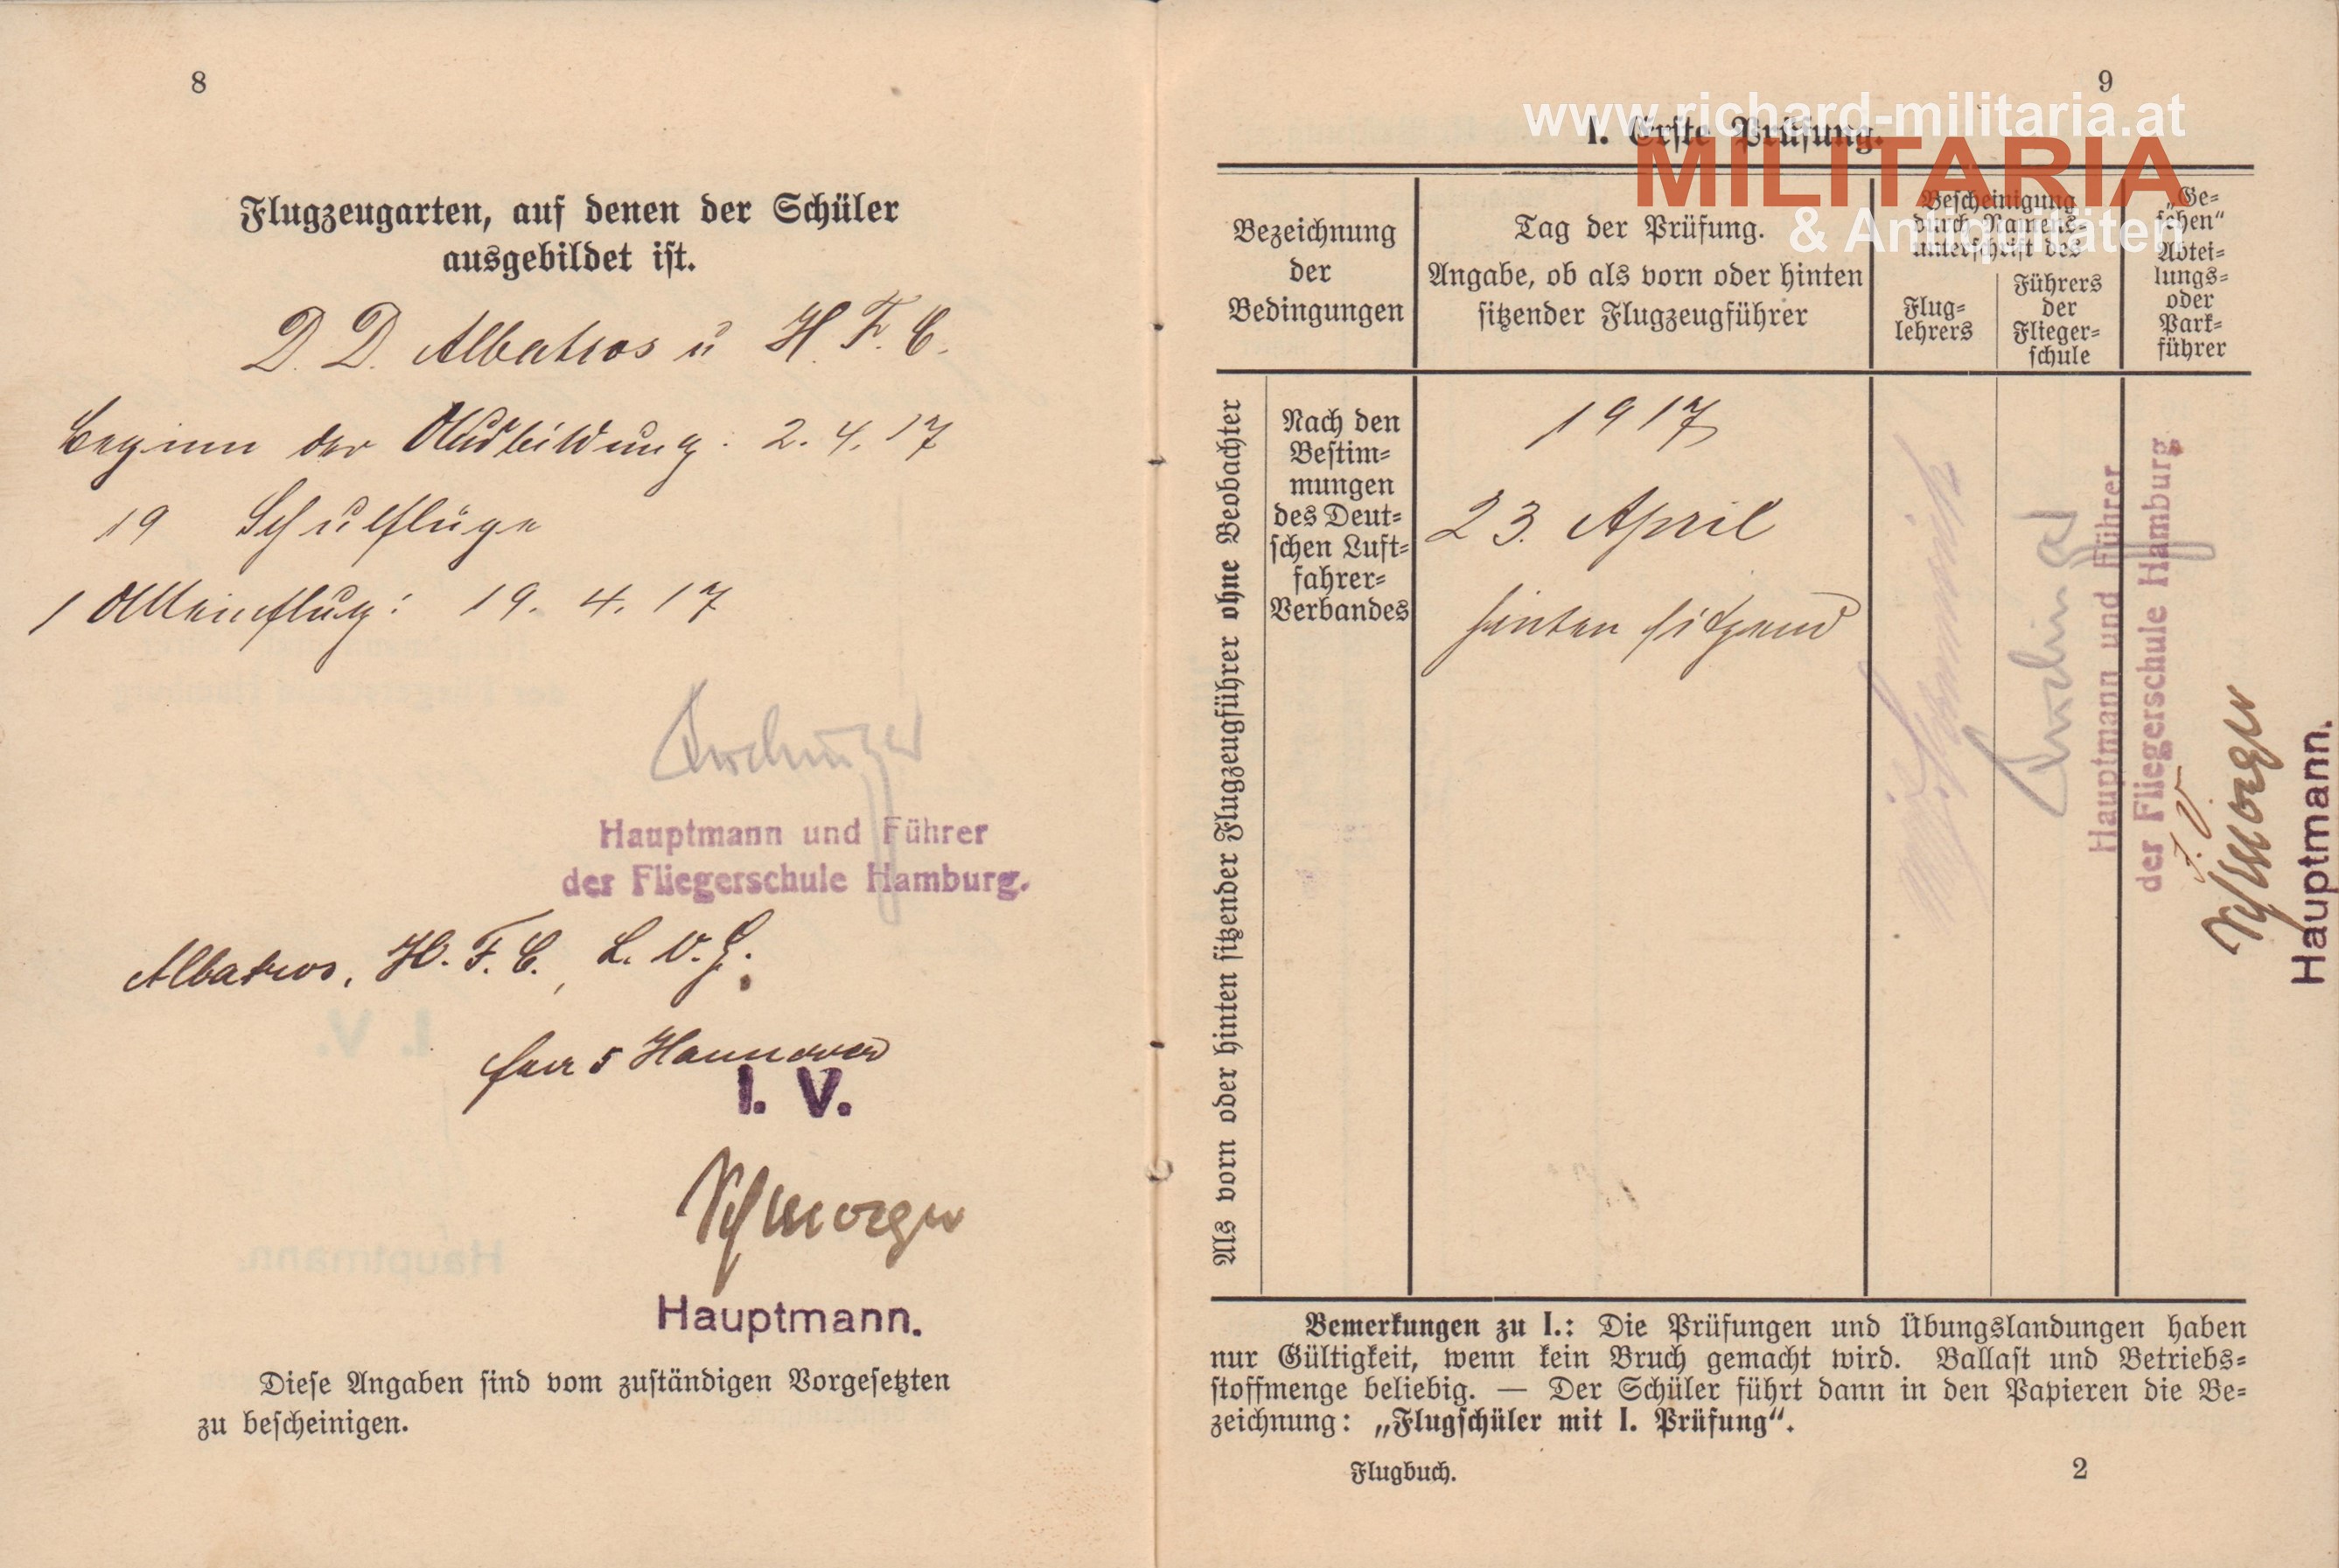 8
Flugzeugarten, auf denen der Schüler
ausgebildet ist.
D. D. Albatros u H. F. C.
Beginn der Ausbildung: 2. 4. 17
19 Schulflüge
1 Alleinflug: 19. 4. 17
Hauptmann und Führer
der Fliegerschule Hamburg.
Albatros, H. F. C., L. V. G.
Hannover
I. V.
Hauptmann.
Diese Angaben sind vom zuständigen Vorgesetzten
zu bescheinigen.
9
www.richard-militaria.at
MILITARIA
& Antiquitäten
I. Erste Prüfung.
Bezeichnung
der
Bedingungen
Tag der Prüfung.
Angabe, ob als vorn oder hinten
sitzender Flugzeugführer
Bescheinigung
durch Namens-
unterschrift des
Flug-
lehrers
Führers
der
Flieger-
schule
„Ge-
sehen“
Abtei-
lungs-
oder
Park-
führer
Als vorn oder hinten sitzender Flugzeugführer ohne Beobachter
Nach den
Bestim-
mungen
des Deut-
schen Luft-
fahrer-
Verbandes
1917
23. April
hinten sitzend
Hauptmann und Führer
der Fliegerschule Hamburg
I. V.
Hauptmann.
Bemerkungen zu I.: Die Prüfungen und Übungslandungen haben
nur Gültigkeit, wenn kein Bruch gemacht wird. Ballast und Betriebs-
stoffmenge beliebig. — Der Schüler führt dann in den Papieren die Be-
zeichnung: „Flugschüler mit I. Prüfung“.
Flugbuch.
2